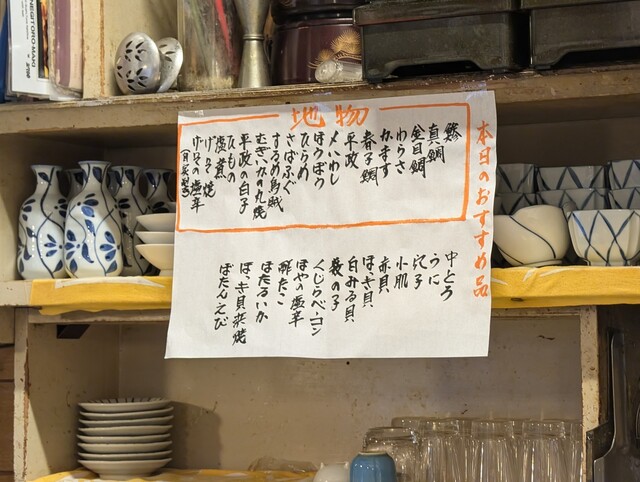 NEGITORO-MAKI
本日のおすすめ品
地物
鯵
真鯛
金目鯛
わらさ
かます
春子鯛
平政
〆いわし
ほうぼう
ひらめ
さばふぐ
するめ烏賊
むぎいかの丸焼
平政の白子
ひもの
中とろ
うに
穴子
小肌
赤貝
ほっき貝
白みる貝
数の子
くじらベーコン
ほやの塩辛
酢だこ
ほたるいか
ほっき貝浜焼
ぼたんえび